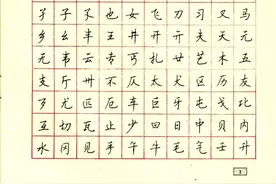 孑子孓也女飞刃习叉马
乡幺丰王井开亓夫天元
无韦云专丐扎廿艺木五
支厅卅不仄太犬区历友
歹尤匹厄车巨牙屯戈比
互切瓦止少曰日中贝内
水冈见手午牛毛气壬升
1